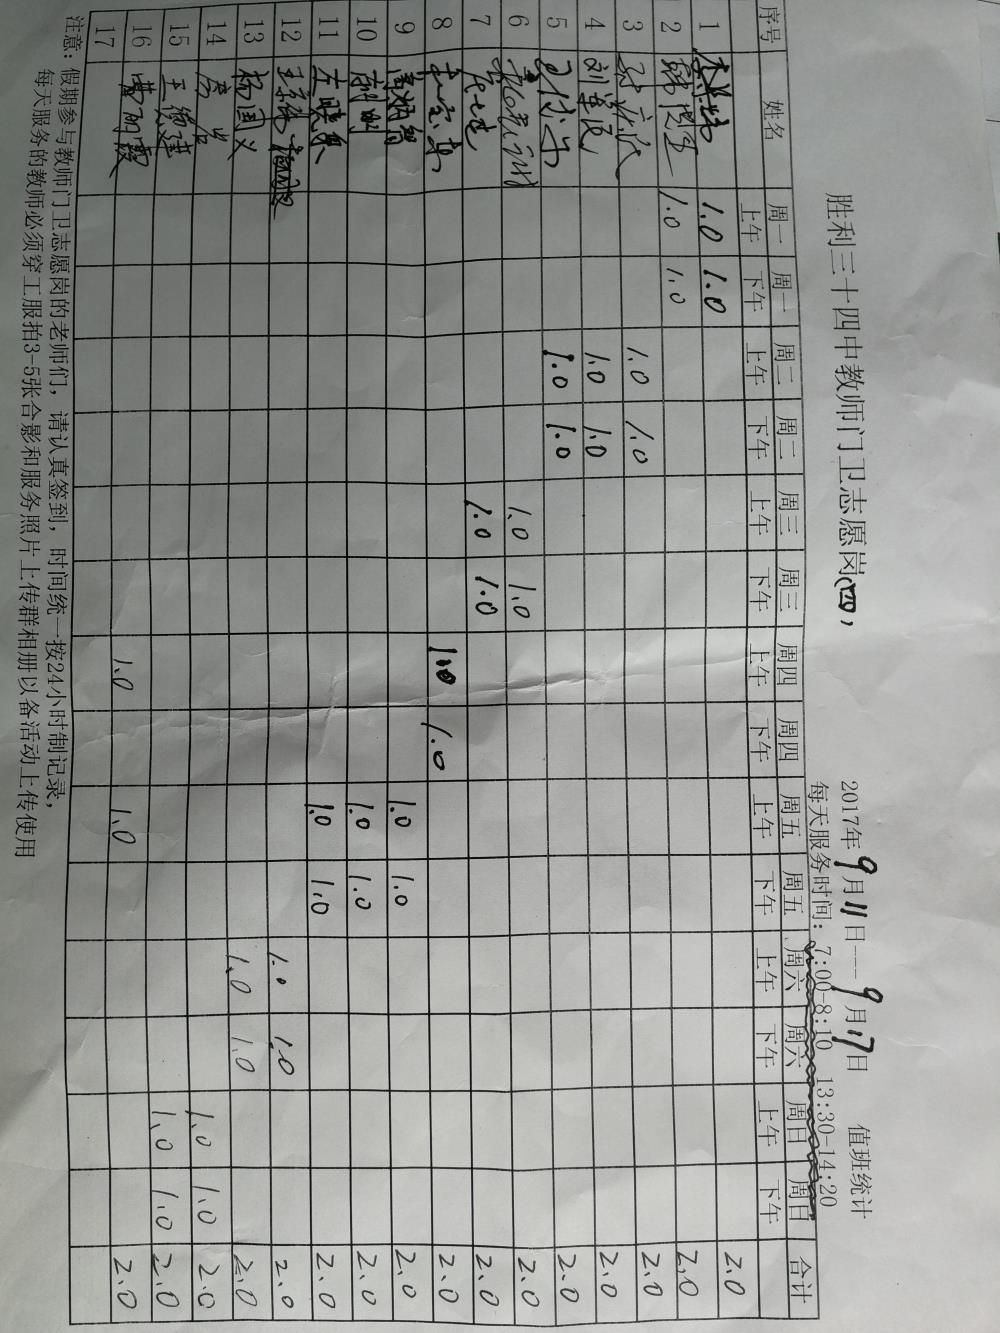 胜利三十四中教师门卫志愿岗(四)
2017年9月11日---9月17日 值班统计
每天服务时间: 7:00-8:10 13:30-14:20
序号 姓名 周一 周一 周二 周二 周三 周三 周四 周四 周五 周五 周六 周六 周日 周日 合计
上午 下午 上午 下午 上午 下午 上午 下午 上午 下午 上午 下午 上午 下午
1 1.0 1.0 2.0
2 1.0 1.0 2.0
3 1.0 1.0 2.0
4 刘军民 1.0 1.0 2.0
5 1.0 1.0 2.0
6 1.0 1.0 2.0
7 1.0 1.0 2.0
8 1.0 1.0 2.0
9 1.0 1.0 2.0
10 1.0 1.0 2.0
11 左晓泉 1.0 1.0 2.0
12 1.0 1.0 2.0
13 杨国义 1.0 1.0 2.0
14 1.0 1.0 2.0
15 1.0 1.0 2.0
16 曹丽霞 1.0 1.0 2.0
17
注意: 假期参与教师门卫志愿岗的老师们, 请认真签到, 时间统一按24小时制记录,
每天服务的教师必须穿工服拍3-5张合影和服务照片上传群相册以备活动上传使用